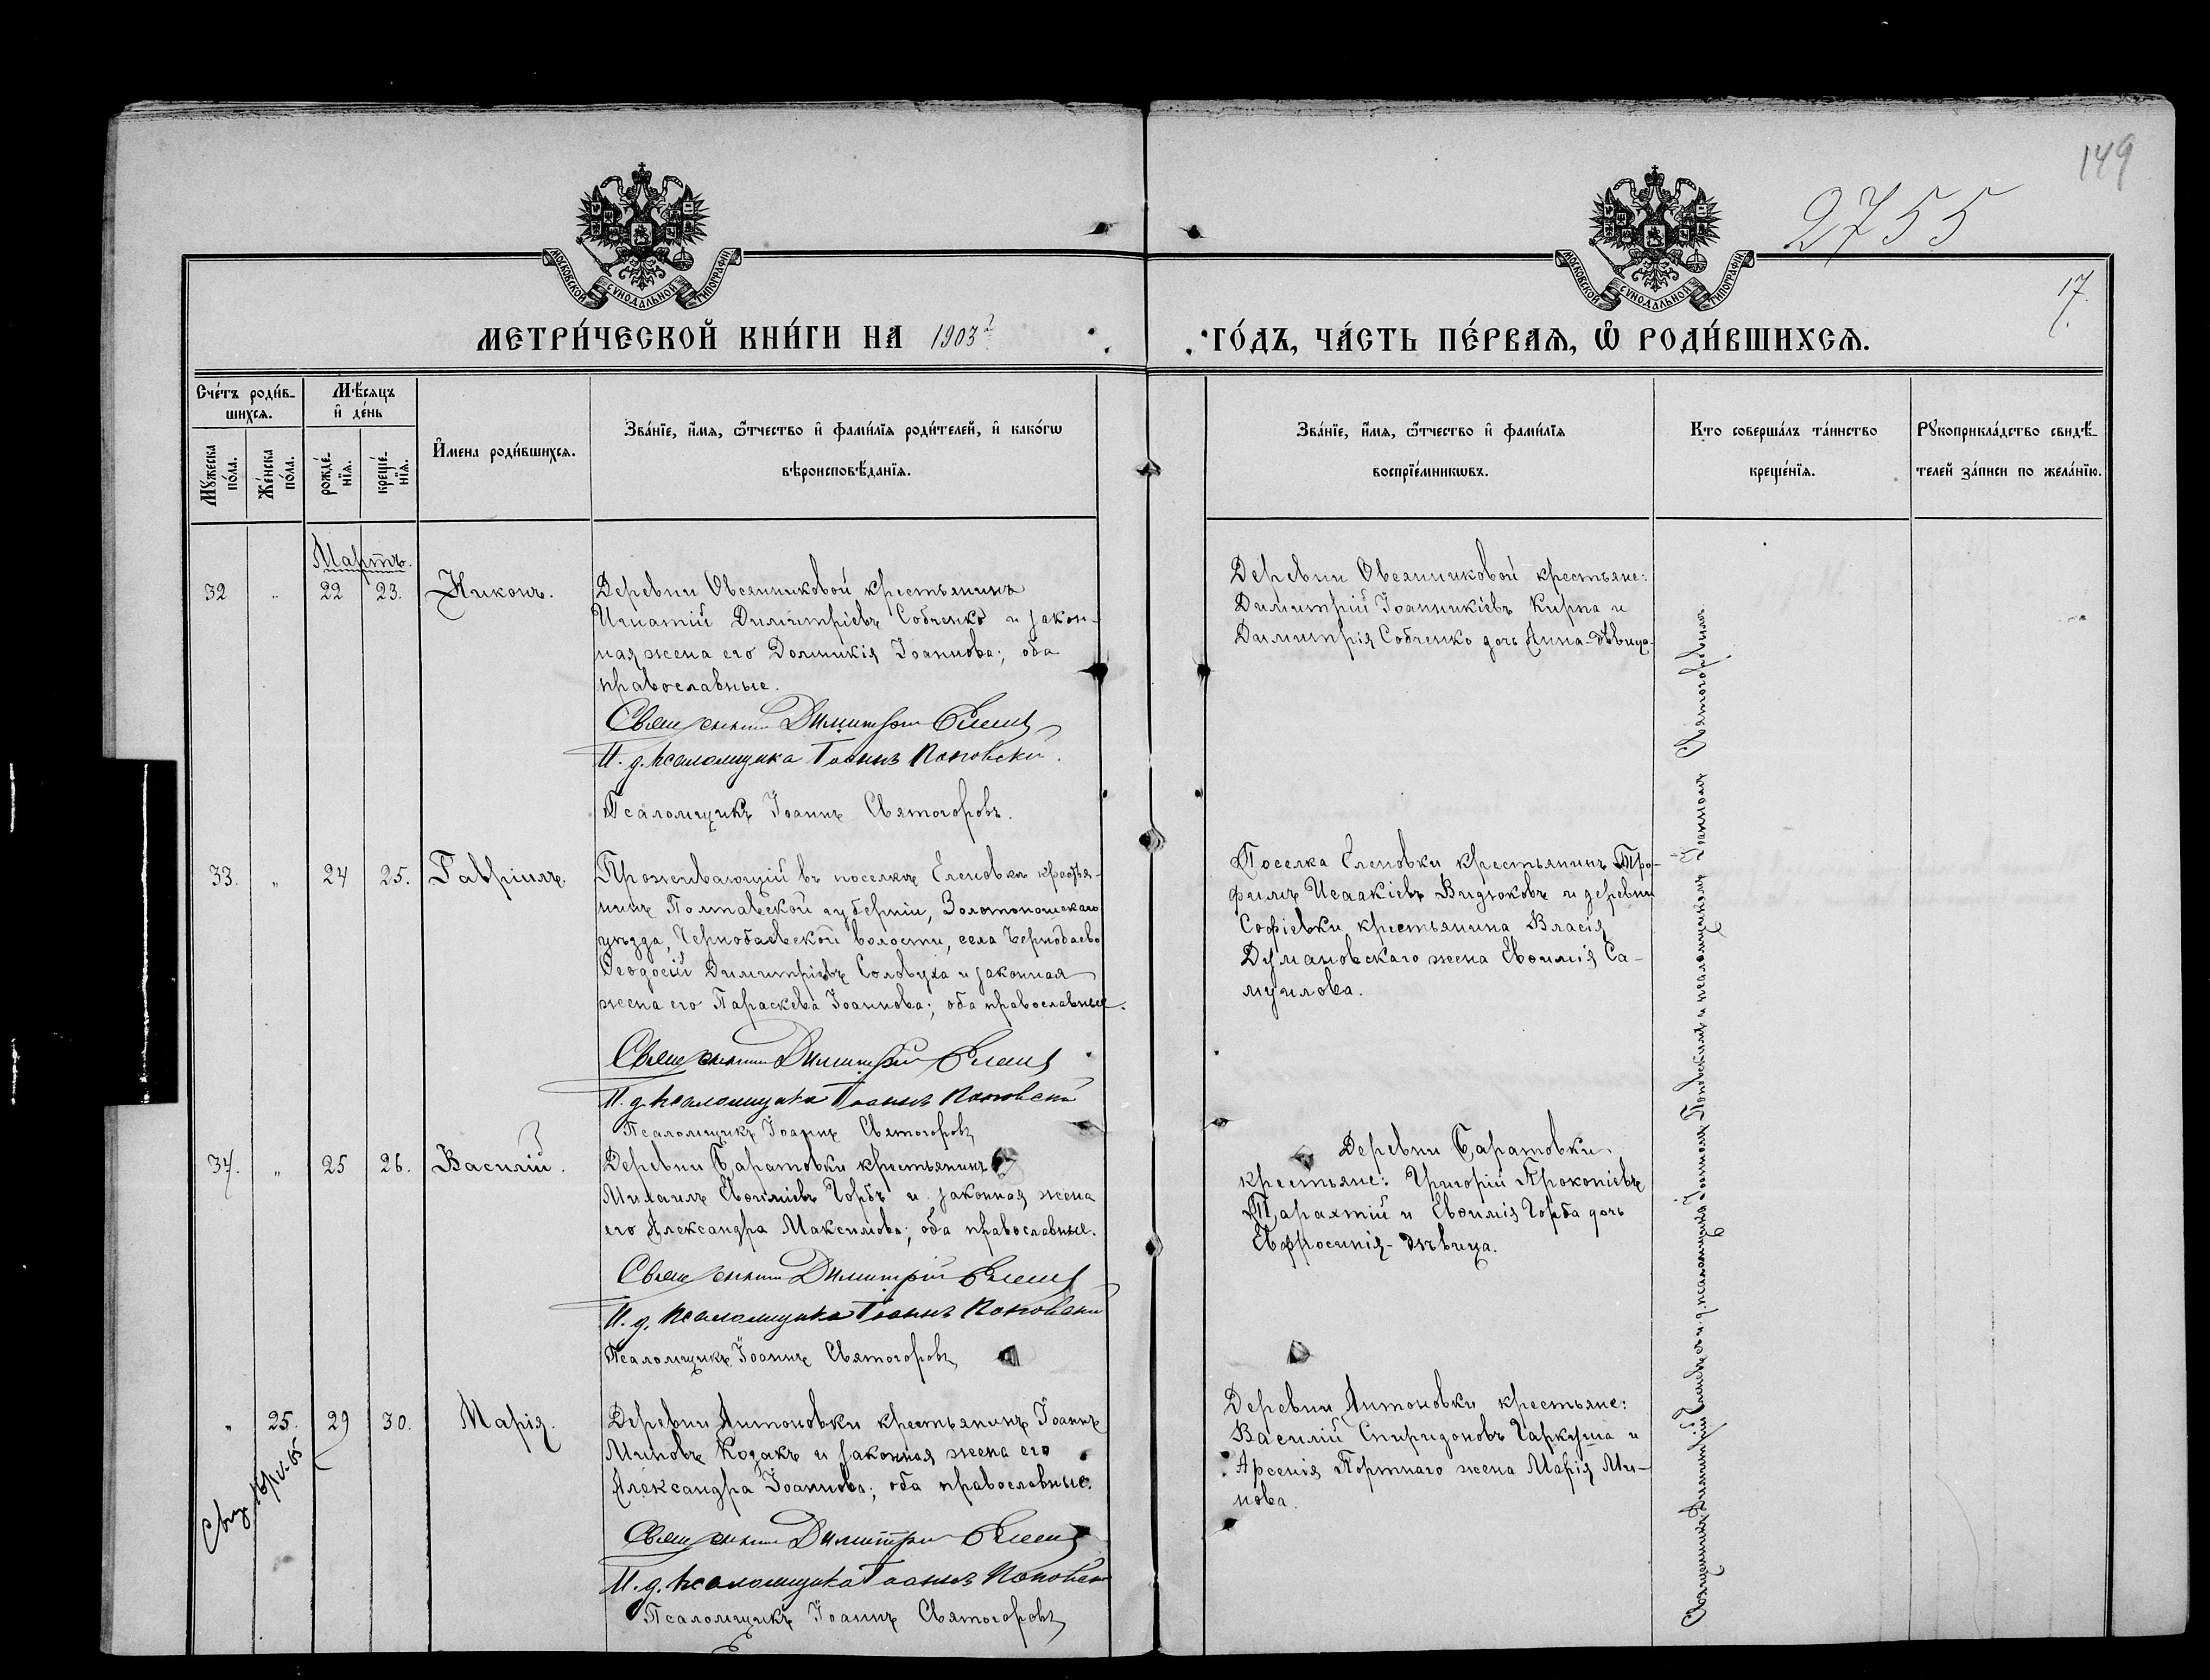 149
2755
17.
МОСКОВСКОЙ СѴНОДАЛЬНОЙ ТИПОГРАФІИ
МОСКОВСКОЙ СѴНОДАЛЬНОЙ ТИПОГРАФІИ
МЕТРИ́ЧЕСКОЙ КНИ́ГИ НА 1903 г
ГО́ДЪ, ЧА́СТЬ ПЕ́РВАѦ, Ѽ РОДИ́ВШИХСѦ.
Сче́тъ роди́в-
шихсѧ.
Мꙋ́жеска по́ла.
Же́нска по́ла.
Мѣ́сѧцъ
и҆ де́нь
рожде́-
нїѧ.
креще́-
нїѧ.
И҆́мена роди́вшихсѧ.
Зва́нїе, и҆́мѧ, ѻ҆́тчество и҆ фами́лїѧ роди́телей, и҆ како́гѡ
вѣроисповѣ́данїѧ.
Зва́нїе, и҆́мѧ, ѻ҆́тчество и҆ фами́лїѧ
воспрїе́мникѡвъ.
Кто соверша́лъ та́инство
креще́нїѧ.
Рꙋкоприкла́дство свидѣ́-
телей за́писи по жела́нїю.
Мартъ.
32 " 22 23. Никонъ.
Деревни Овсянниковой крестьянинъ
Игнатій Димитріевъ Собченко и закон-
ная жена его Домникія Іоаннова; оба
православные.
Священникъ Димитрій
И. д. псаломщика Іоаннъ Поповскій.
Псаломщикъ Іоаннъ Святогоровъ.
Деревни Овсянниковой крестьяне:
Димитрій Іоанникіевъ Кирпа и
Димитрія Собченко дочь Анна-дѣвица.
33. " 24 25. Гавріилъ.
Проживающій въ поселкѣ Еленовкѣ крестья-
нинъ Полтавской губерніи, Золотоношскаго
уѣзда, Чернобаевской волости, села Чернобаево
Ѳеодосій Димитріевъ Соловуха и законная
жена его Параскева Іоаннова; оба православные.
Священникъ Димитрій
И. д. псаломщика Іоаннъ Поповскій
Псаломщикъ Іоаннъ Святогоровъ
Поселка Еленовки крестьянинъ Тро-
фимъ Исаакіевъ Видюковъ и деревни
Софіевки крестьянина Власія
Думановскаго жена Евѳимія Са-
муилова.
34. " 25 26. Василій.
Деревни Баратовки крестьянинъ
Михаилъ Евѳиміевъ Горбъ и законная жена
его Александра Максимова; оба православные.
Священникъ Димитрій
И. д. псаломщика Іоаннъ Поповскій
Псаломщикъ Іоаннъ Святогоровъ
Деревни Баратовки
крестьяне: Григорій Прокопіевъ
Парахтій и Евѳимія Горба дочь
Евфросинія-дѣвица.
" 25. 29 30. Марія.
Деревни Антоновки крестьянинъ Іоаннъ
Миновъ Козакъ и законная жена его
Александра Іоаннова; оба православные.
Священникъ Димитрій
И. д. псаломщика Іоаннъ Поповскій
Псаломщикъ Іоаннъ Святогоровъ
Деревни Антоновки крестьяне:
Василій Спиридоновъ Гаркуша и
Арсенія Портнаго жена Марія Ми-
нова.
16/IV-65
Священникъ Димитрій съ и. д. псаломщика Іоанномъ Поповскимъ и псаломщикомъ Іоанномъ Святогоровымъ